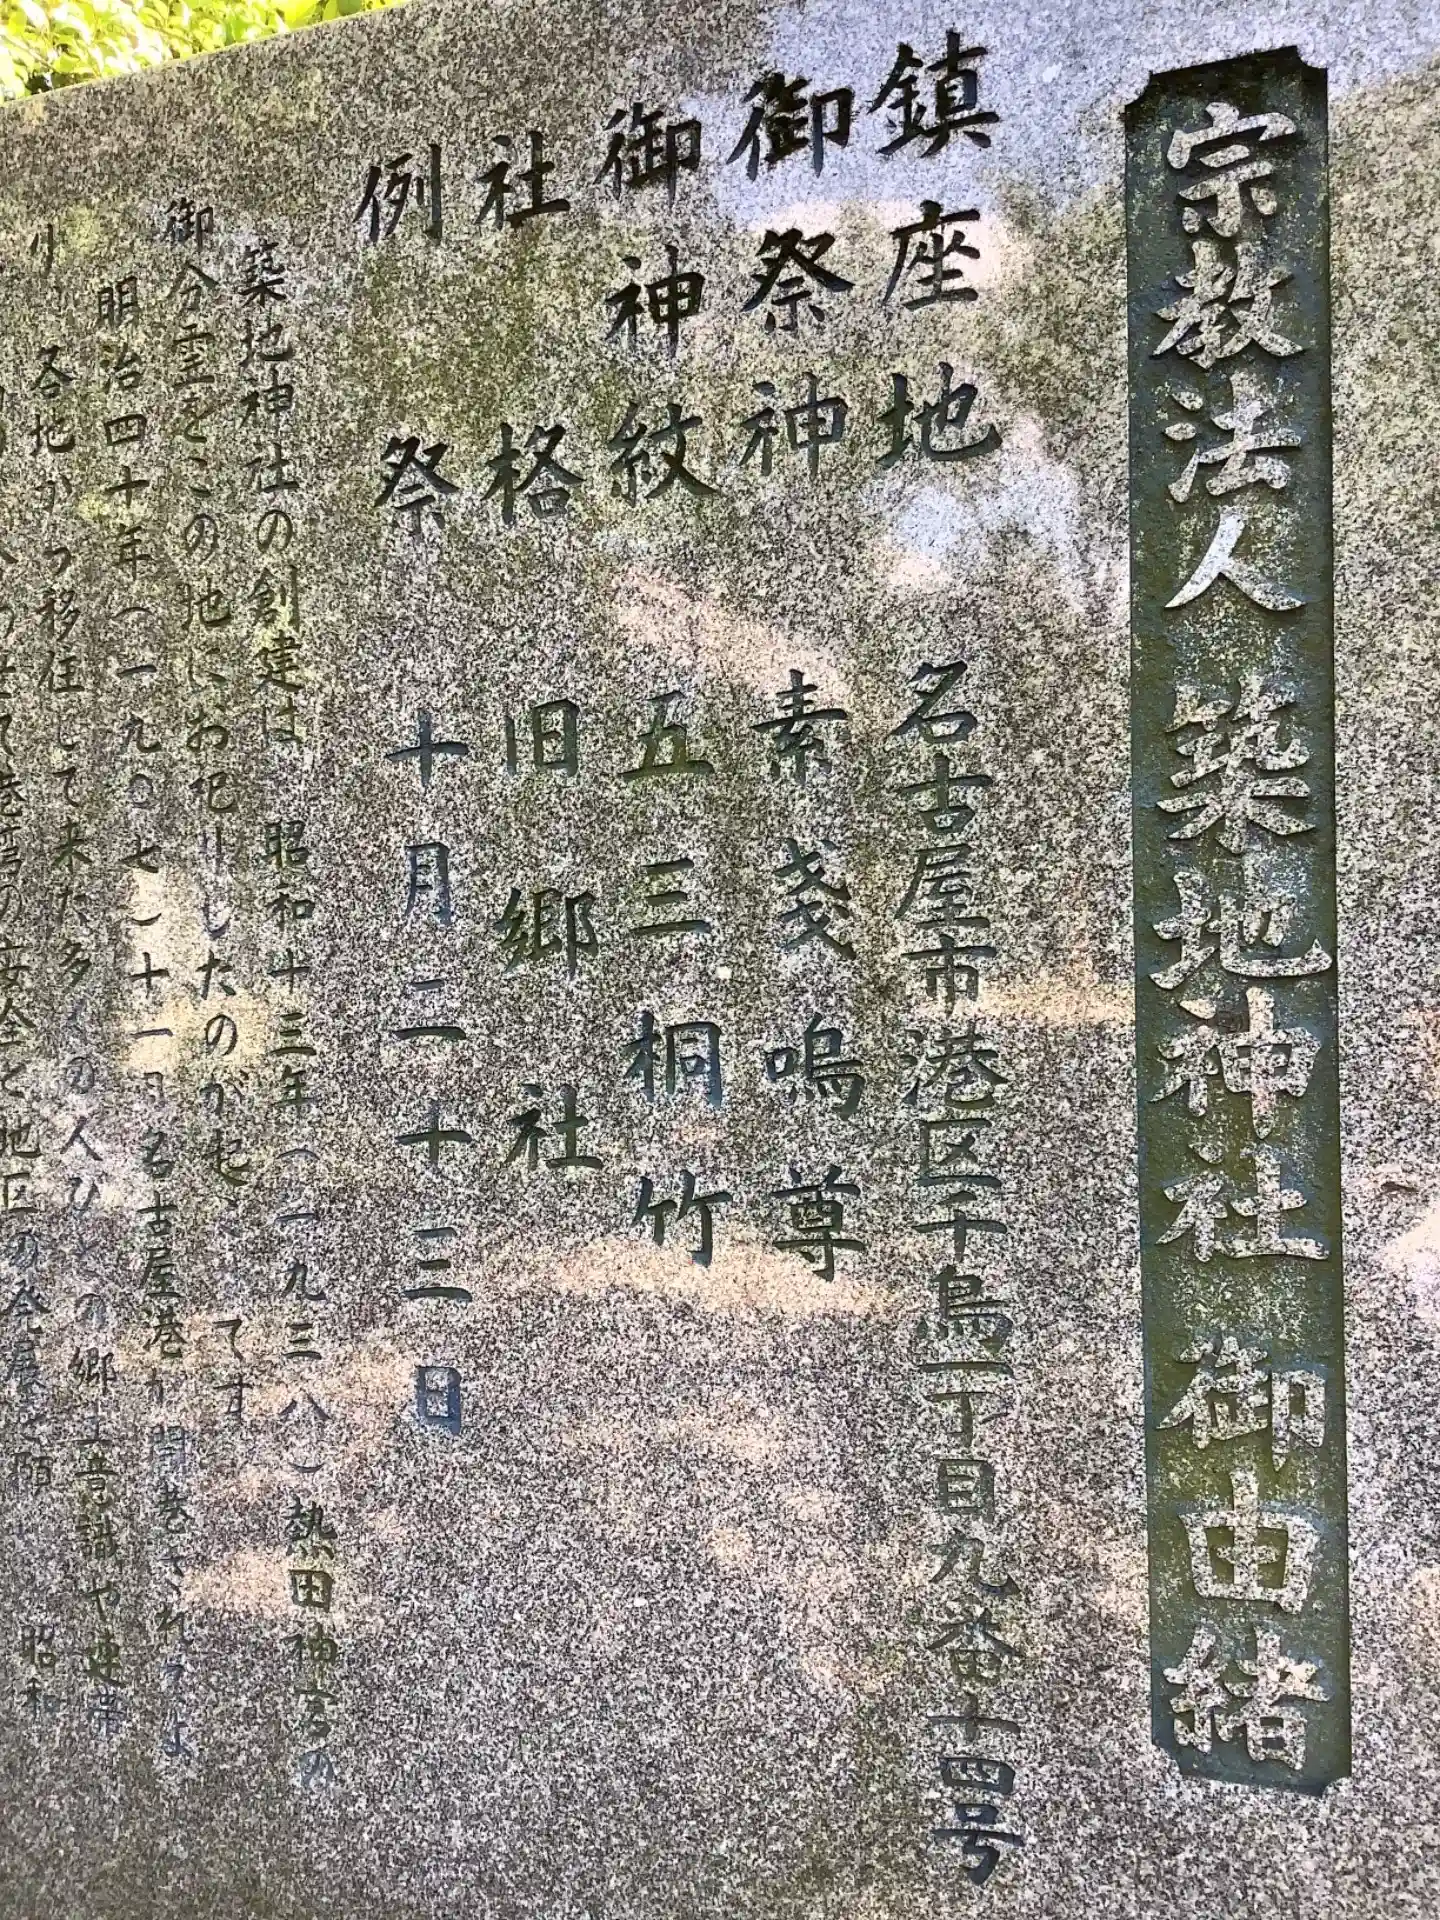 宗教法人 築地神社 御由緒
鎮座地 名古屋市港区千鳥一丁目九番十四号
御祭神 素戔嗚尊
御神紋 五三桐竹
社格 旧郷社
例祭 十月二十三日
築地神社の創建は、昭和十三年(一九三八)熱田神宮の
御分霊をこの地にお祀りしたのが起 です
明治四十年(一九〇七)十一月名古屋港が開港され
り、各地から移住して来た多くの人びとの郷土意識や連帯
港 の安全と地区の発展を 昭和